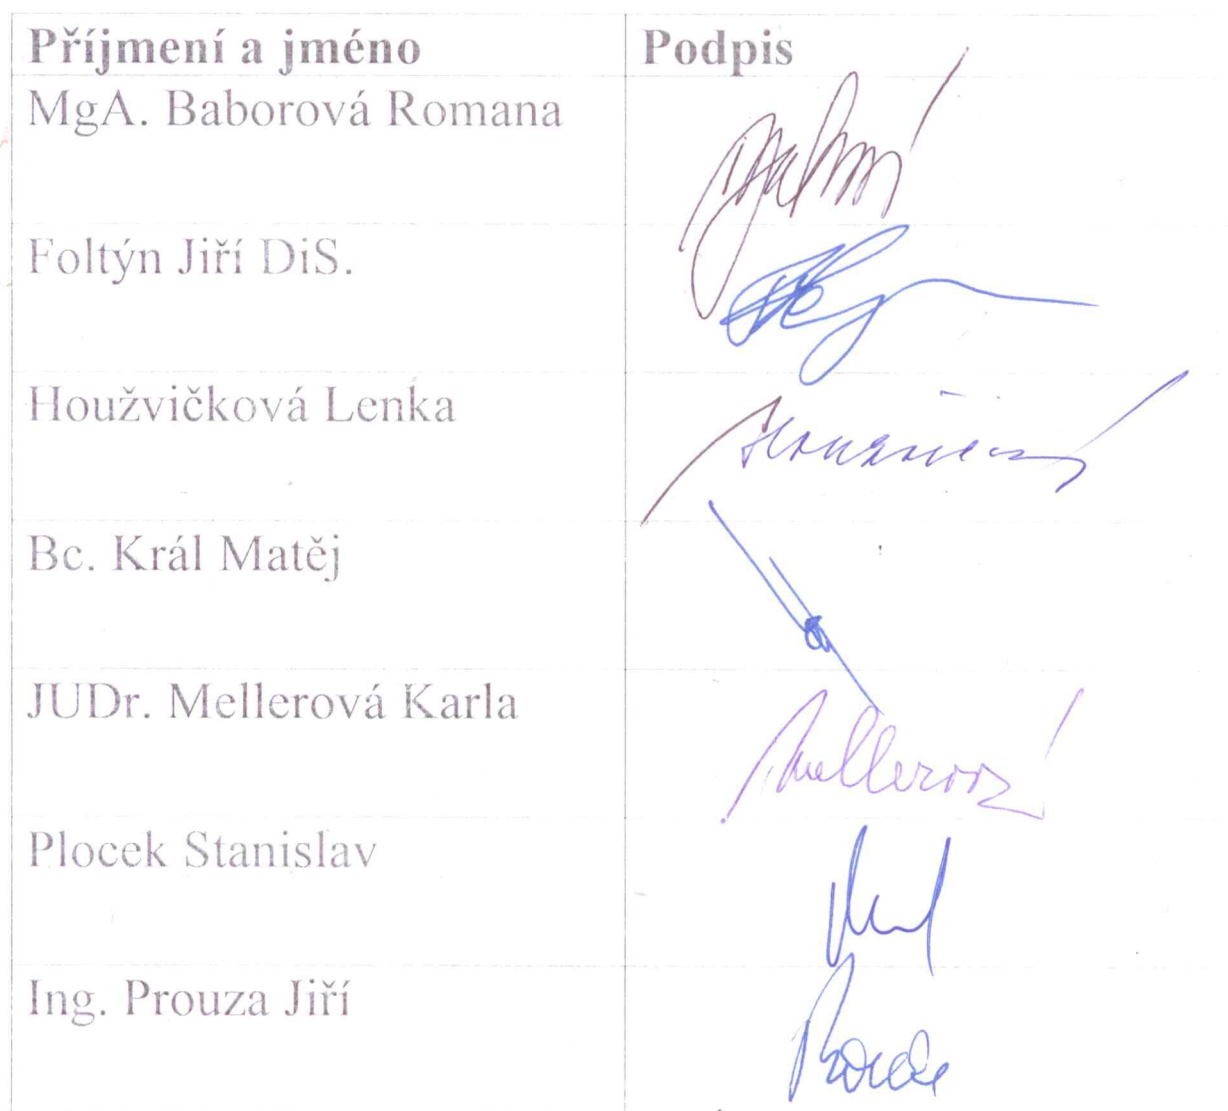 Příjmení a jméno Podpis
MgA. Baborová Romana
Foltýn Jiří DiS.
Houžvičková Lenka
Bc. Král Matěj
JUDr. Mellerová Karla
Mellerová
Plocek Stanislav
Ing. Prouza Jiří